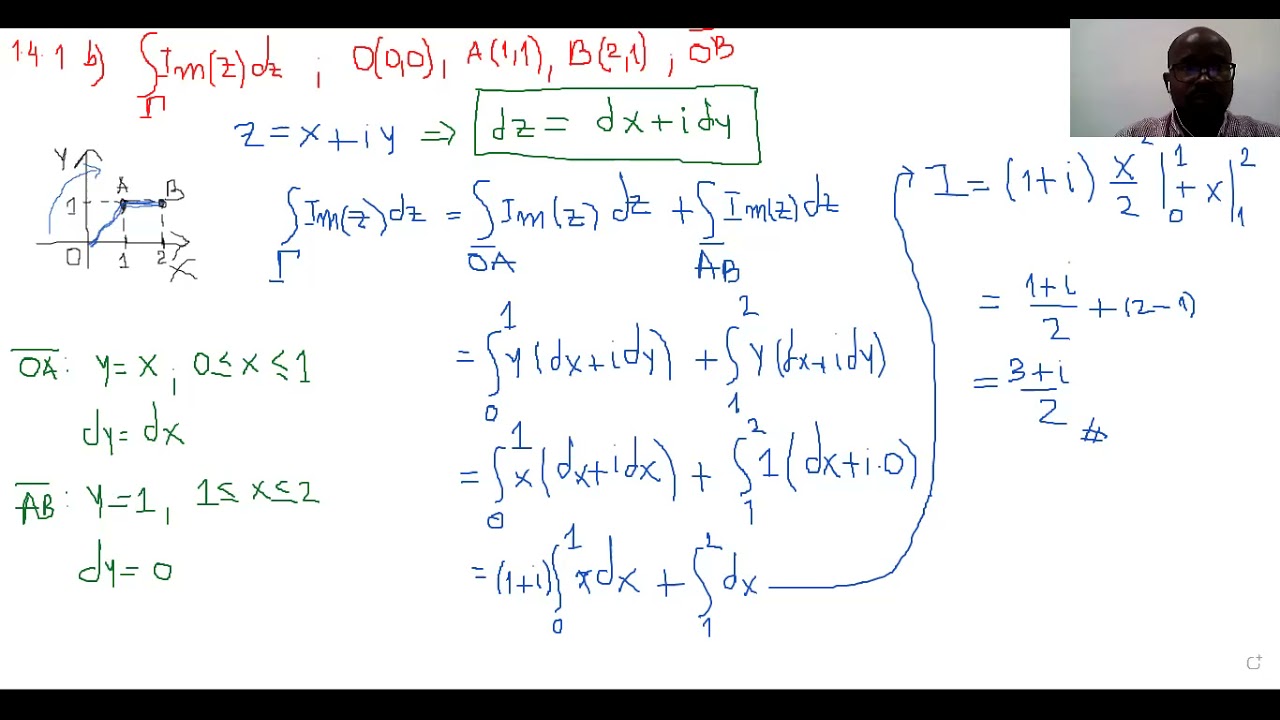 1.4.1 b) ∫_Γ Im(z)dz ; O(0,0), A(1,1), B(2,1) ; O̅B̅
z = x+iy ⇒ dz = dx+idy
Y
A B
1
O 1 2 X
∫_Γ Im(z)dz = ∫_O̅A̅ Im(z) dz + ∫_A̅B̅ Im(z)dz
= ∫_0^1 y(dx+idy) + ∫_1^2 y(dx+idy)
= ∫_0^1 x(dx+idx) + ∫_1^2 1(dx+i·0)
= (1+i)∫_0^1 xdx + ∫_1^2 dx
O̅A̅: y=x, 0≤x≤1
dy=dx
A̅B̅: y=1, 1≤x≤2
dy=0
I = (1+i) x²/2 |_0^1 + x|_1^2
= (1+i)/2 + (2-1)
= (3+i)/2 #